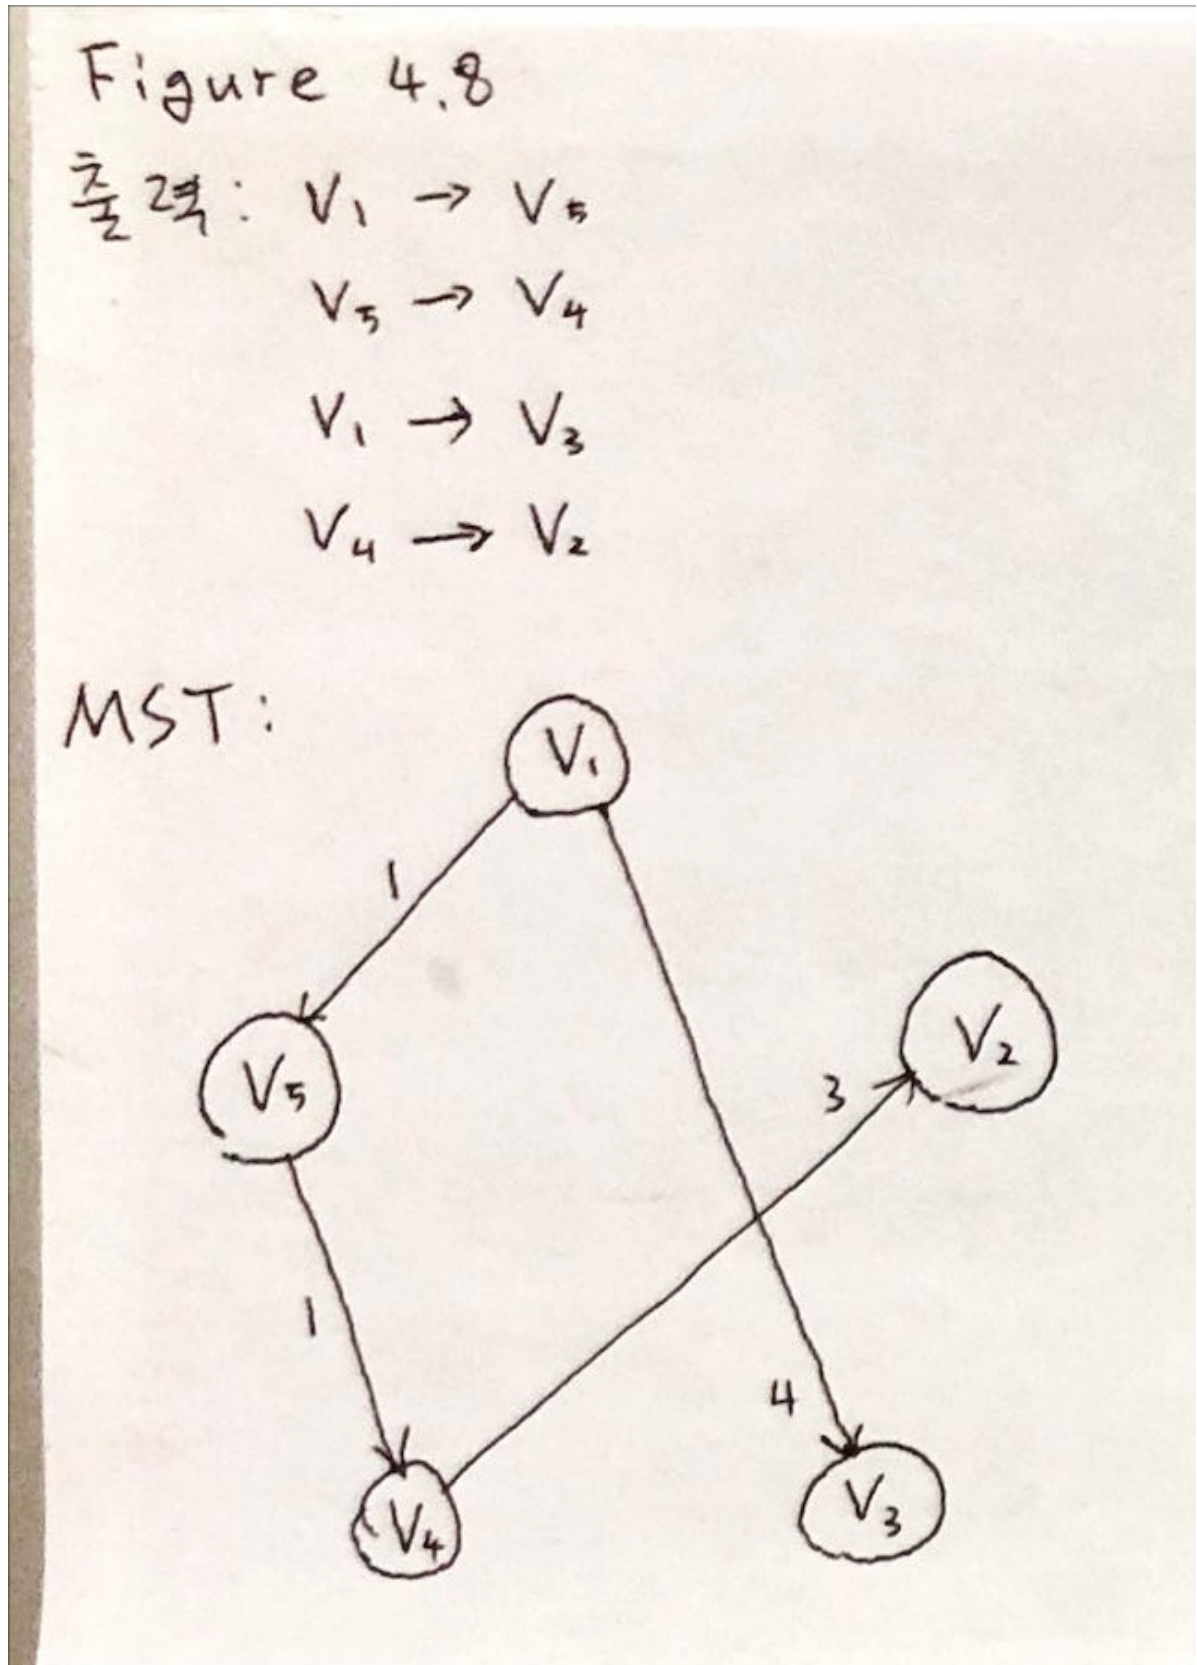 Figure 4.8
출력: V₁ → V₅
V₅ → V₄
V₁ → V₃
V₄ → V₂
MST:
V₁
1
V₂
V₅
3
1
4
V₄
V₃